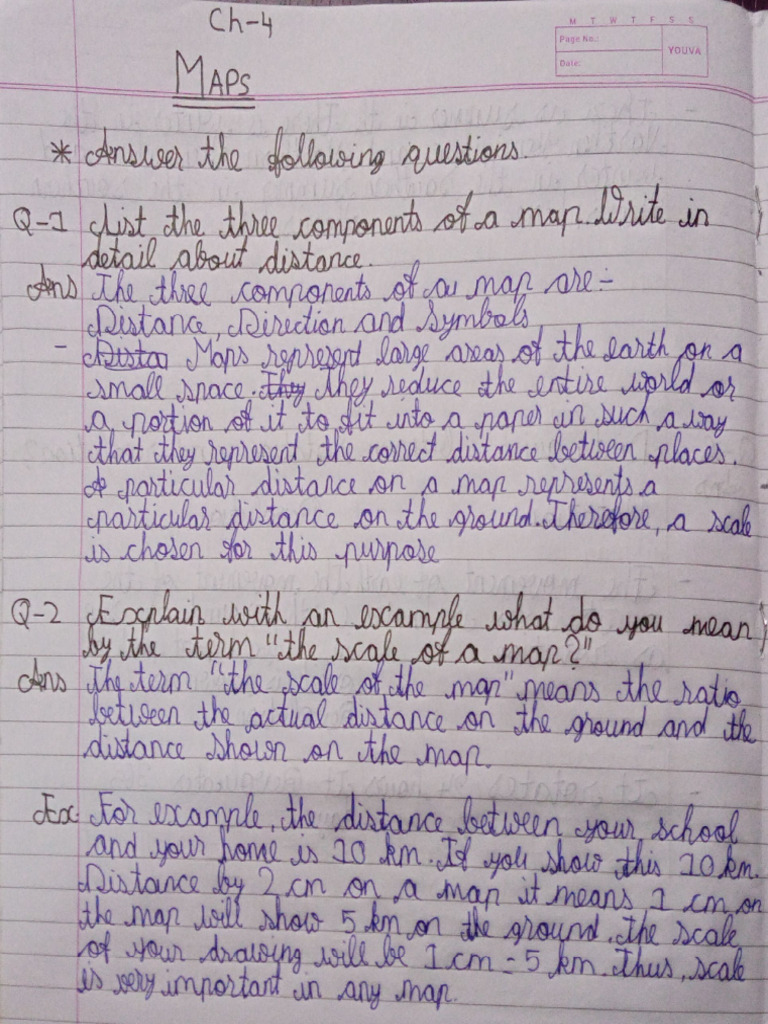 Ch-4
M T W T F S S
Page No.:
YOUVA
Date:
MAPS
* Answer the following questions.
Q-1 List the three components of a map. Write in
detail about distance.
Ans The three components of a map are:-
Distance, Direction and Symbols
- Dista Maps represent large areas of the earth on a
small space. They they reduce the entire world or
a portion of it to fit into a paper in such a way
that they represent the correct distance between places.
A particular distance on a map represents a
particular distance on the ground. Therefore, a scale
is chosen for this purpose
Q-2 Explain with an example what do you mean
by the term "the scale of a map?"
Ans The term "the scale of the map" means the ratio
between the actual distance on the ground and the
distance shown on the map.
Ex For example, the distance between your school
and your home is 10 km. If you show this 10 km.
Distance by 2 cm on a map it means 1 cm on
the map will show 5 km on the ground. The scale
of your drawing will be 1 cm = 5 km. Thus, scale
is very important in any map.